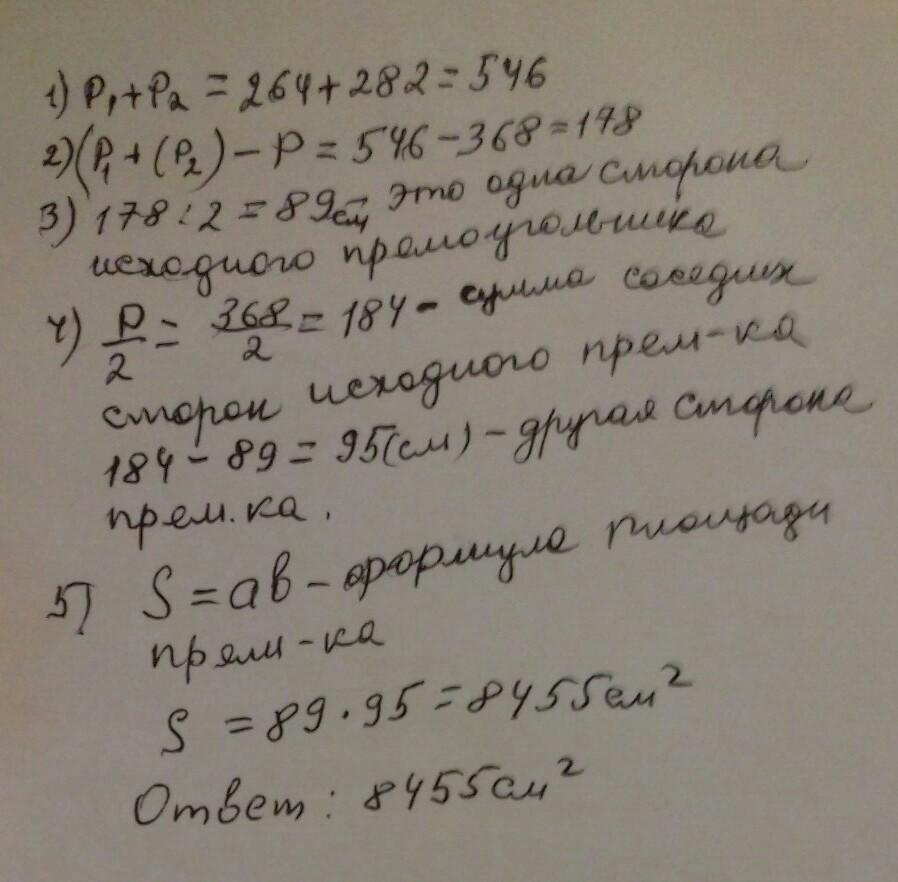 1) P₁+P₂ = 264+282=546
2)(P₁+(P₂)-P = 546-368=178
3) 178:2=89см - это одна сторона
исходного прямоугольника
4) P/2 = 368/2 = 184 - сумма соседних
сторон исходного прям-ка
184-89=95(см)-другая сторона
прям.ка.
5) S=ab-формула площади
прям-ка
S =89·95=8455см²
Ответ: 8455см²